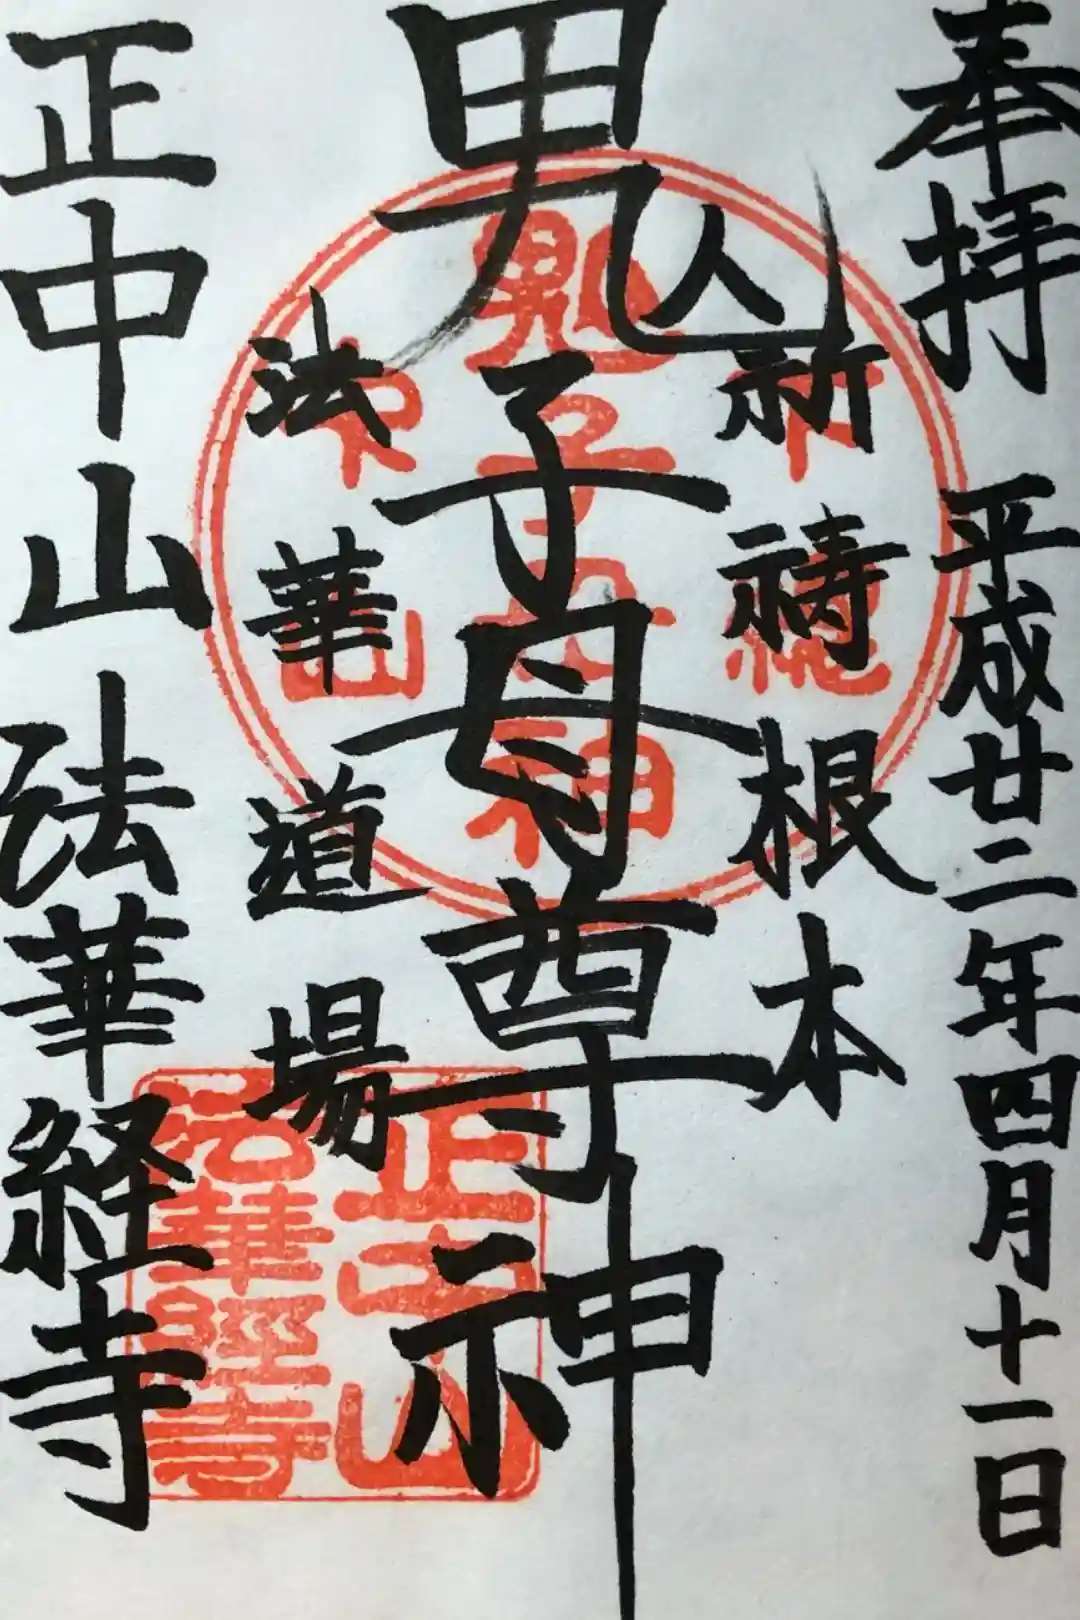 奉拝 平成廿二年四月十一日
祈祷根本
鬼子母尊神
法華道場
正中山法華経寺
下總
鬼子母神
中山
正中山
法華經寺